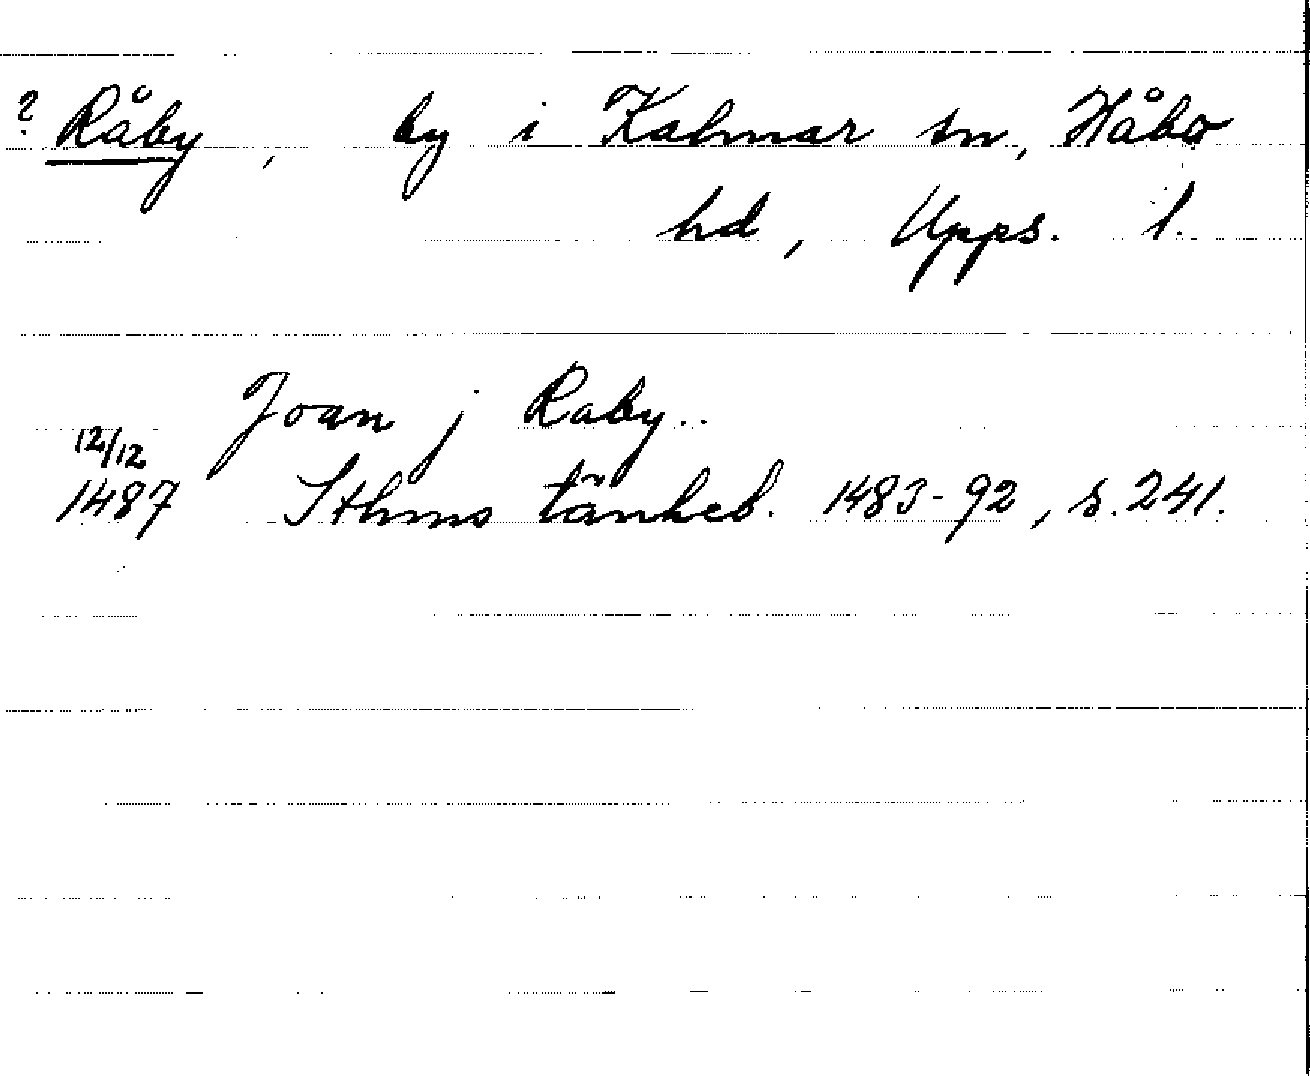 ? Råby, by i Kalmar sn, Håbo
hd, Upps. l.
Joan j Raby..
12/12
1487 Sthms tänkeb. 1483-92, s. 241.